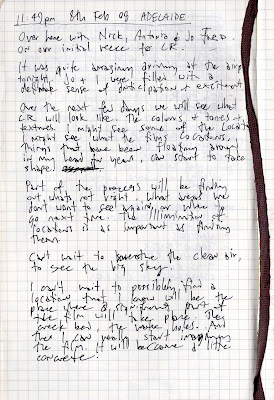 11:49pm 8th Feb 09 ADELAIDE
Over here with Nick, Antonia & Jo Ford
on our initial recce for CR.
It was quite amazing arriving at the airport
tonight. Jo & I were filled with a
definite sense of anticipation & excitement
Over the next few days we will see what
CR will look like. The colours & tones &
textures. I might see some of the locations
might see what the film's locations,
things that have been floating around
in my head for years, can start to take
shape
Part of the process will be finding
out whats not right. What areas we
don't want to see again, or where to
go next time. The illimination of
locations is as important as finding
them.
Can't wait to the clean air,
to see the big sky.
I can't wait, to possibly find a
location that I know will be the
place where a significant part of
the film will take place. The
creek bed, the water holes. And
then I can really start imagining
the film. It will become a little
concrete!